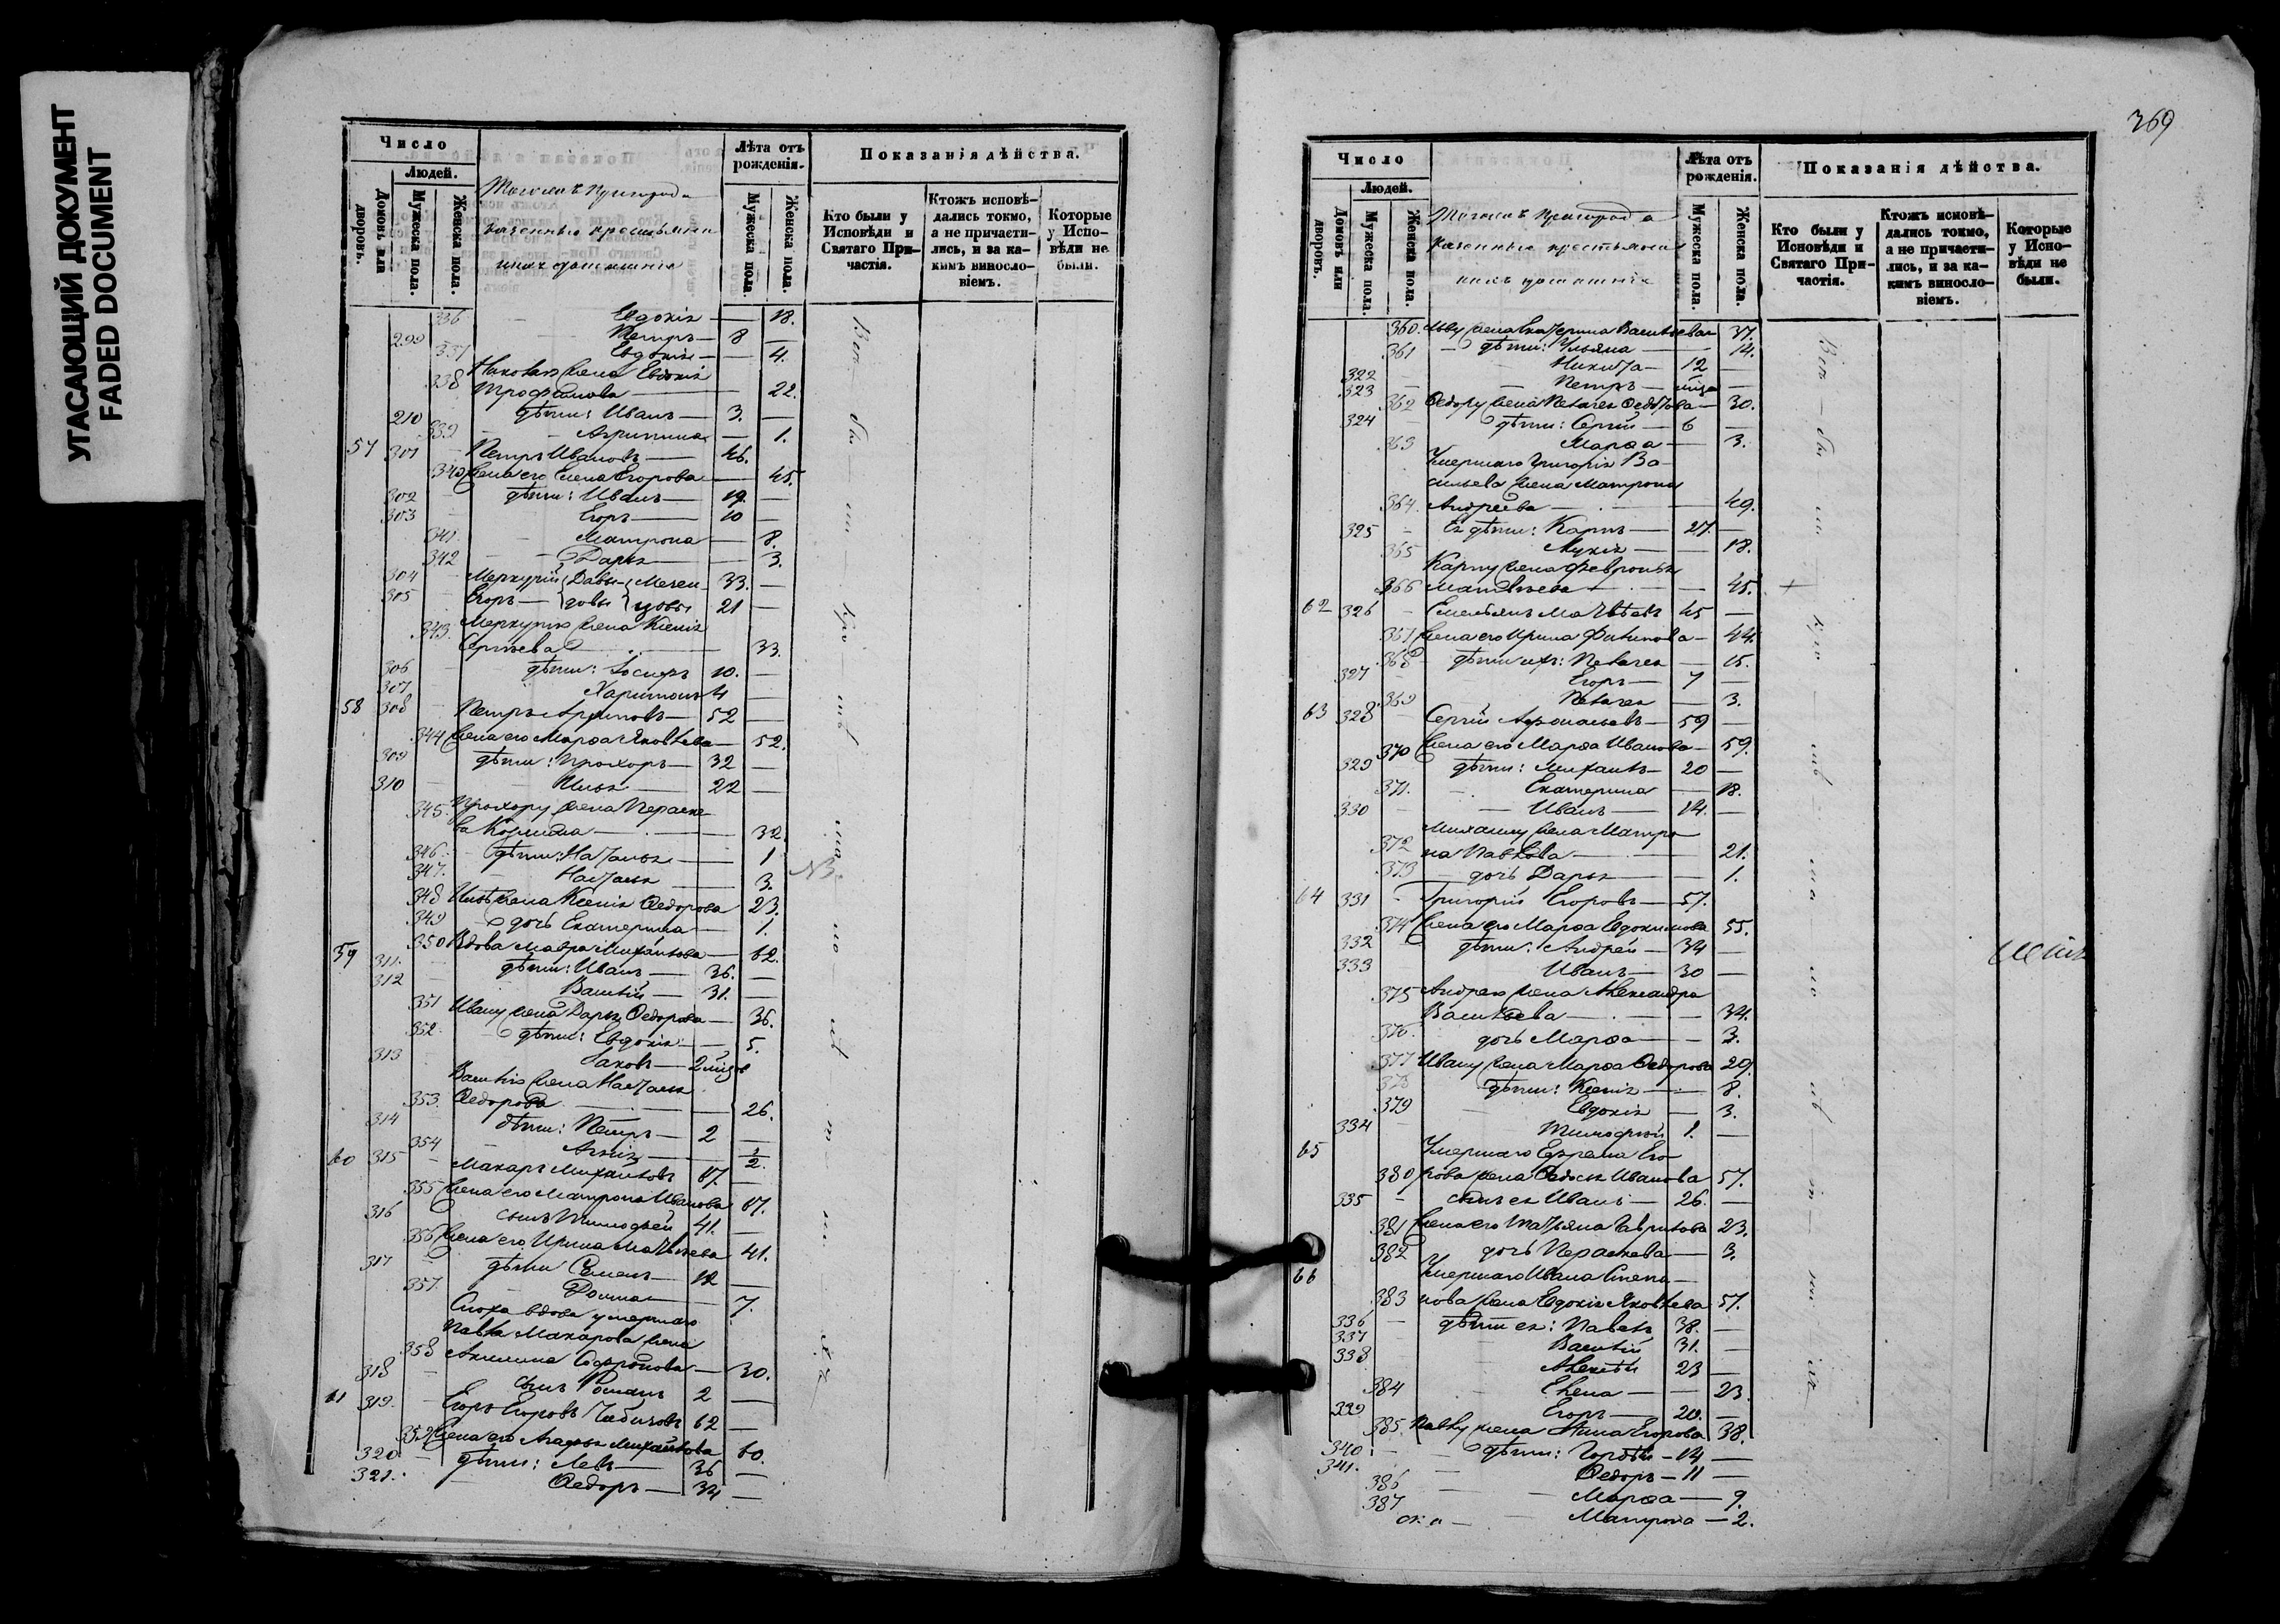 УГАСАЮЩИЙ ДОКУМЕНТ
FADED DOCUMENT
Число
Людей.
Домовъ или дворовъ.
Мужеска пола.
Женска пола.
Лѣта отъ рожденія.
Мужеска пола.
Женска пола.
Показанія дѣйства.
Кто были у Исповѣди и Святаго Причастія.
Ктожъ исповѣдались токмо, а не причастились, и за какимъ винословіемъ.
Которые у Исповѣди не были.
336 Евдокія — 18.
299 Петръ — 8 —
337 Евдокія — 4.
338 жена Евдокія
Трофимова — 22.
210 дѣти: Иванъ — 3. —
339 Агрипина — 1.
57 301 Петръ Ивановъ — 46.
340 Жена его Елена Егорова — 45.
302 дѣти: Иванъ — 19. —
303 Егоръ — 10 —
341 Матрона — 8.
342 Дарья — 3.
304 Меркурій 33. —
305 Егоръ — 21 —
343. Меркурію жена Ксенія
Сергѣева — 33.
306 дѣти: Іосифъ 10. —
307 Харитонъ 4 —
58 308 Петръ Архиповъ — 52 —
344 Жена его Марѳа Яковлева — 52.
309 дѣти: Прохоръ — 32 —
310 Илья — 22 —
345. Прохору жена Параске-
ва Козмина — 32.
346. дѣти: Наталья — 1
347. Наталья — 3. NB.
348 жена Ксенія Ѳедорова 23.
349 дочь Екатерина — 1.
59 350 Вдова Мавра Михайлова — 62.
311. дѣти: Иванъ — 36. —
312 Василій — 31. —
351 Ивану жена Дарья Ѳедорова — 36.
352. дѣти: Евдокія — 5.
313 Іаковъ — 2
Василію жена Наталья
353. Ѳедорова — 26.
314 дѣти: Петръ — 2 —
354
60 315 Макаръ Михайловъ 67. —
355 Жена его Матрона Иванова 67.
316 сынъ Тимоѳей 41. —
356 Жена его Ирина Матвѣева 41.
317 дѣти Семенъ — 12 —
357. Домна — 7.
Сноха вдова умершаго
Павла Макарова жена
358 Акилина Софронова — 30.
318 сынъ Романъ 2 —
61 319. Егоръ Егоровъ 62 —
359 Жена его Агафья Михайлова 60.
320. дѣти: Левъ — 36 —
321. Ѳедоръ — 34 —
369
Число
Людей.
Домовъ или дворовъ.
Мужеска пола.
Женска пола.
Лѣта отъ рожденія.
Мужеска пола.
Женска пола.
Показанія дѣйства.
Кто были у Исповѣди и Святаго Причастія.
Ктожъ исповѣдались токмо, а не причастились, и за какимъ винословіемъ.
Которые у Исповѣди не были.
360. Льву жена Екатерина Васильева 37.
361 дѣти: Ульяна — 14.
322 Никита — 12 —
323 Петръ —
362 Ѳедору жена Пелагея — 30.
324 дѣти: Сергій — 6 —
363 Марѳа — 3.
Умершаго Григорія Ва-
сильева жена Матрона
364. Андреева — 49.
325 Ея дѣти: Карпъ — 27. —
365 18.
Карпу жена Февронья
366 Матвѣева — 45. +
62 326 Емельянъ Матвѣевъ 45 —
367 Жена его Ирина Филипова — 44.
368 дѣти ихъ: Пелагея — 15.
327 Егоръ — 7 —
369 Пелагея — 3.
63 328 Сергій Аѳонасьевъ — 59 —
370 Жена его Марѳа Иванова — 59.
329 дѣти: Михаилъ — 20 —
371. Екатерина — 18.
330 Иванъ — 14. —
Михаилу жена Матро-
372 на Павлова — 21.
373 дочь Дарья — 1.
64 331 Григорій Егоровъ — 57.
374 Жена его Марѳа Евдокимова 55.
332 дѣти: Андрей — 34 —
333 Иванъ — 30 —
375 Андрею жена Александра
Васильева — 34.
376 дочь Марѳа — 3.
377 Ивану жена Марѳа Ѳедорова 29.
378 дѣти: Ксенія — 8.
379 Евдокія — 3.
334 Тимоѳей 1. —
65 Умершаго Ефрема Его-
380 рова жена Ѳедосья Иванова 57.
335 сынъ ея Иванъ — 26. —
381 Жена его Татьяна Гаврилова 23.
382 дочь Параскева — 3.
66 Умершаго Ивана Степа-
383 нова жена Евдокія Яковлева 57.
336 дѣти ея: Павелъ 38. —
337 Василій 31. —
338 Алексѣй 23 —
384 Елена — 23.
339 Егоръ — 20. —
385. Павлу жена Анна Егорова 38.
340 дѣти: Гордѣй — 14 —
341. Ѳедоръ — 11 —
386 Марѳа — 9.
387 Матрона — 2.